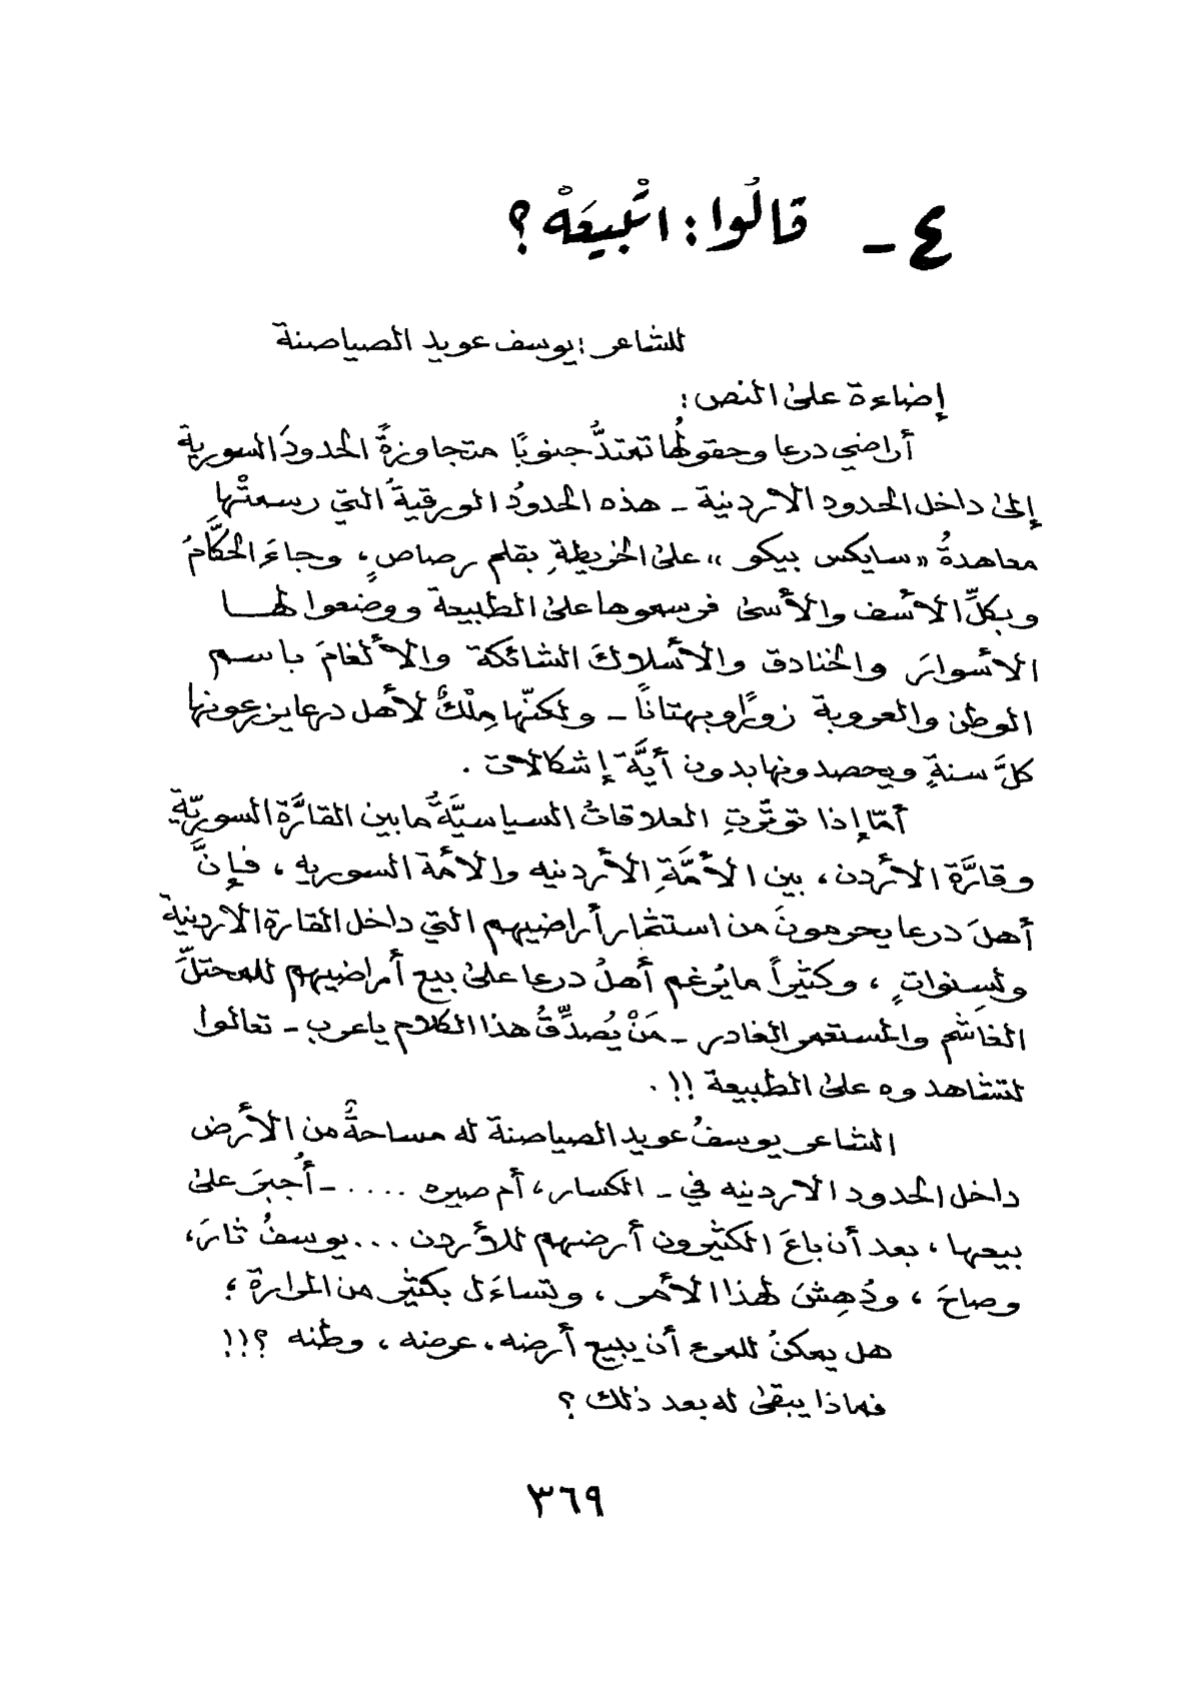 ٤ - قالُوا: اتْبيعَهْ ؟
للشاعر : يوسف عويد الصياصنة
إضاءة على النص :
أراضي درعا وحقولُها تمتدُّ جنوبًا متجاوزةً الحدودَ السورية
إلى داخل الحدود الاردنية - هذه الحدودُ الورقيةُ التي رسمتْها
معاهدةُ «سايكس بيكو» على الخريطةِ بقلم رصاصٍ ، وجاءَ الحكَّامُ
وبكلِّ الأسف والأسى فرسموها على الطبيعة ووضعوا لهـــا
الأسوارَ والخنادق والأسلاكَ الشائكة والألغامَ باسم
الوطن والعروبة زورًا وبهتاناً - ولكنّها مِلْكٌ لأهل درعا يزرعونها
كلَّ سنةٍ ويحصدونها بدون أيَّة إشكالات .
أمّا إذا توتَّرتِ العلاقاتُ السياسيَّةُ ما بين القارَّة السوريّة
وقارَّة الأردن ، بين الأمَّةِ الأردنيه والأمة السوريه ، فإنَّ
أهلَ درعا يحرمونَ من استثمار أراضيهم التي داخل القارة الاردنية
ولسنواتٍ ، وكثيراً ما يُرغم أهلُ درعا على بيع أراضيهم للمحتلِّ
الغاشم والمستعمر الغادر - مَنْ يُصدِّقُ هذا الكلام يا عرب - تعالوا
لتشاهدوه على الطبيعة !! .
الشاعر يوسفُ عويد الصياصنة له مساحةٌ من الأرض
داخل الحدود الاردنيه في - الكسار ، أم صبره .... - أُجبرَ على
بيعها ، بعد أن باعَ الكثيرون أرضهم للأردن ... يوسفُ ثارَ ،
وصاحَ ، ودُهِشَ لهذا الأمر ، وتساءَل بكثير من المرارة ؛
هل يمكنُ للمرء أن يبيع أرضه ، عرضه ، وطنه ؟!!
فماذا يبقى له بعد ذلك ؟
٣٦٩